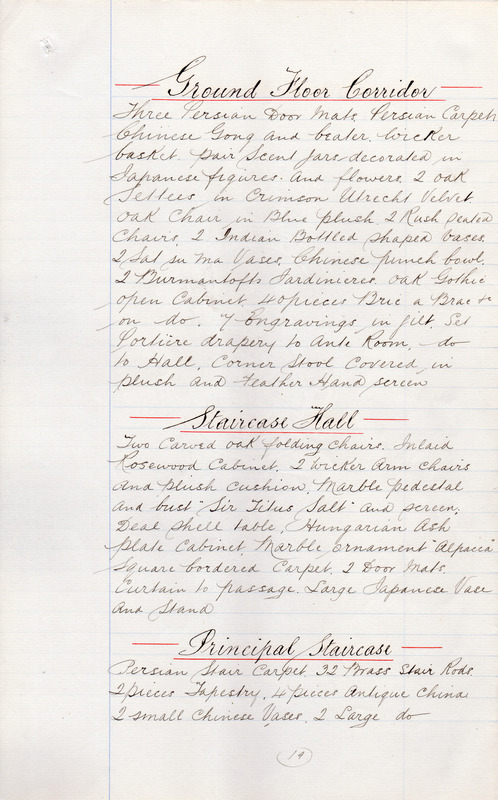 Ground Floor Corridor
Three Persian Door Mats, Persian Carpet
Chinese Gong and beater, Wicker
basket. pair Scent Jars decorated in
Japanese figures. And flowers, 2 oak
Settees in Crimson Utrecht Velvet
Oak Chair in Blue plush 2 Rush Seated
Chairs, 2 Indian Bottled shaped Vases.
2 Sat su ma Vases, Chinese punch bowl,
2 Burmantofts Jardinieres, Oak Gothic
open Cabinet, 40 pieces Bric a Brac &c
on - do. 7 Engravings in gilt, Set
Portiere drapery to Ante Room, - do
to Hall, Corner Stool Covered in
plush and Feather Hand screen
Staircase Hall
Two Carved oak folding Chairs. Inlaid
Rosewood Cabinet. 2 Wicker Arm chairs
And plush cushion, Marble pedestal
and bust "Sir Titus Salt" and screen,
Deal shell table, Hungarian Ash
plate Cabinet, Marble ornament "Alpacca"
Square bordered Carpet. 2 Door Mats.
Curtain to passage. Large Japanese Vase
And Stand
Principal Staircase
Persian Stair Carpet. 32 Brass Stair Rods.
2 pieces Tapestry, 4 pieces Antique China
2 small Chinese Vases. 2 Large do
19